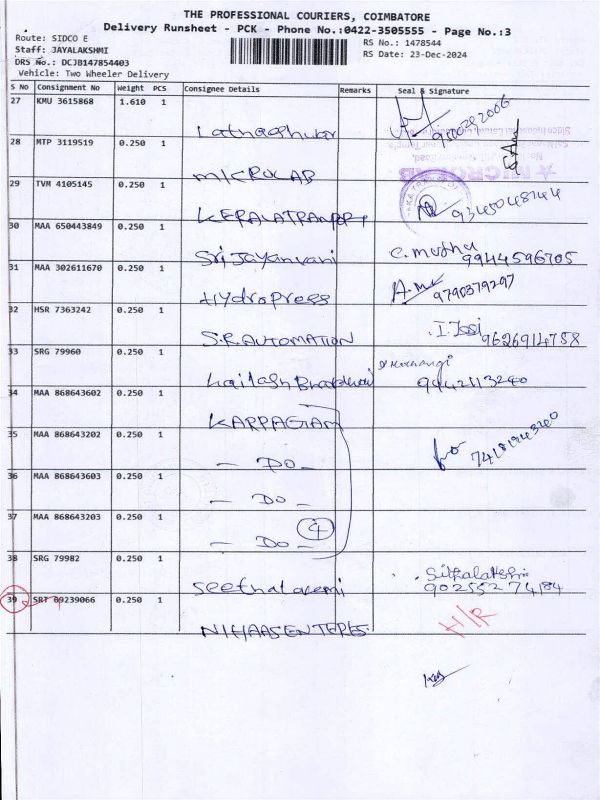 THE PROFESSIONAL COURIERS, COIMBATORE
Delivery Runsheet - PCK - Phone No.:0422-3505555 - Page No.:3
Route: SIDCO E
Staff: JAYALAKSHMI
DRS No.: DCJB147854403
Vehicle: Two Wheeler Delivery
RS No.: 1478544
RS Date: 23-Dec-2024
S No Consignment No Weight PCS Consignee Details Remarks Seal & Signature
27 KMU 3615868 1.610 1
9500282006
28 MTP 3119519 0.250 1
MICROLAB
29 TVM 4105145 0.250 1
KERALATRANPORT
9345048144
30 MAA 650443849 0.250 1
Sri Jayanvani C. Muthu 9944596705
31 MAA 302611670 0.250 1
Hydropress 9790379297
32 HSR 7363242 0.250 1
S.R. AUTOMATION 9626914758
33 SRG 79960 0.250 1
9442113240
34 MAA 868643602 0.250 1
KARPAGAM
35 MAA 868643202 0.250 1
- DO -
36 MAA 868643603 0.250 1
- DO -
37 MAA 868643203 0.250 1
- DO - 4
38 SRG 79982 0.250 1
Seethalaxmi 9025527 4184
39 SRT 09239066 0.250 1
NIHAAS ENTERES